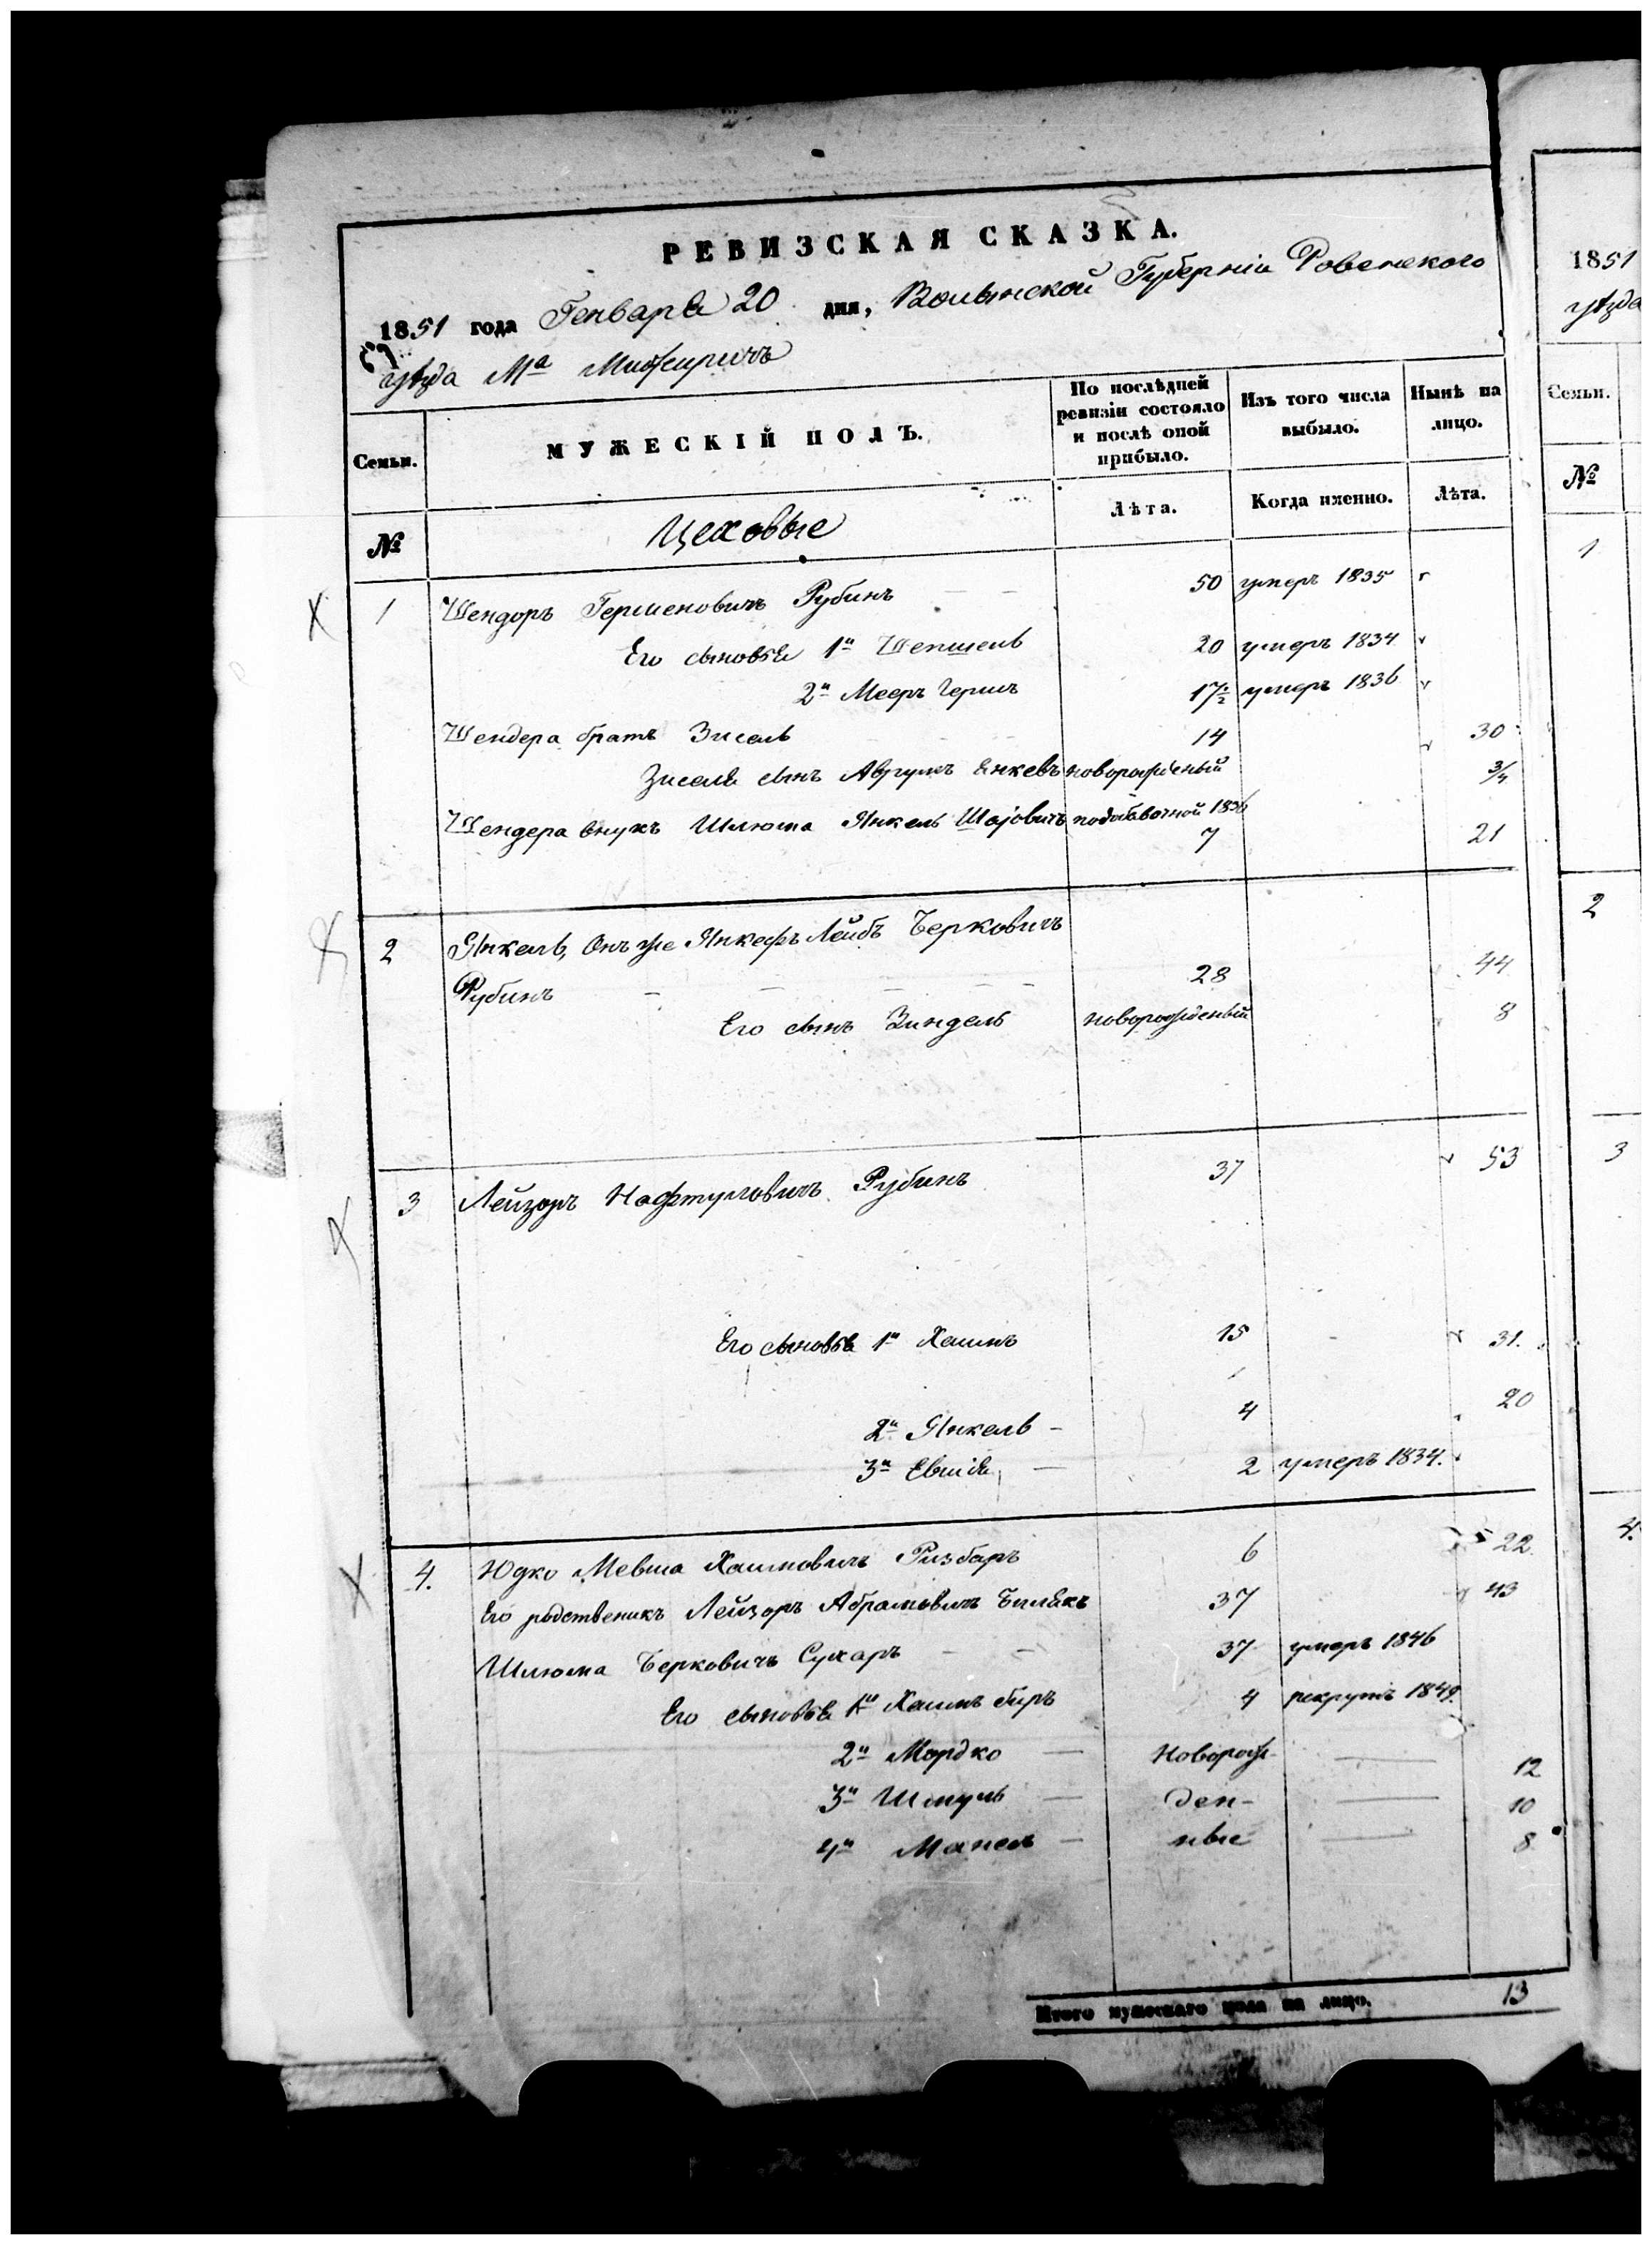 РЕВИЗСКАЯ СКАЗКА.
1851 года Генваря 20 дня, Волынской Губернiи Ровенского
уѣзда Мª Межиричъ
Семьи.
МУЖЕСКIЙ ПОЛЪ.
По послѣдней ревизiи состояло и послѣ оной прибыло.
Изъ того числа выбыло.
Нынѣ на лицо.
№
Цеховые
Лѣта.
Когда именно.
Лѣта.
1 Шендоръ Гершеновичъ Рубинъ 50 умеръ 1835
Его сыновья 1й Шепшель 20 умеръ 1834
2й Мееръ Гершъ 17½ умеръ 1836
Шендера братъ Зисель 14 30
Зиселя сынъ Аврумъ Янкевъ новорожденый 3/4
Шендера внукъ Шлюма Янкель Шаiовичъ подобавочной 1836
7 21
2 Янкель, Онъ же Янкефъ Лейбъ Берковичъ
Рубинъ 28 44
Его сынъ Зиндель новорожденый 8
3 Лейзоръ Нафтуловичъ Рубинъ 37 53
Его сыновья 1й Хаимъ 15 31.
2й Янкель 4 20
3й Евшiя 2 умеръ 1834.
4. Юдко Мевша Хаимовичъ Ризбаръ 6 22
Его родственикъ Лейзоръ Абрамовичъ Билякъ 37 43
Шлюма Берковичъ Сухаръ 37 умеръ 1846
Его сыновья 1й Хаимъ Беръ 4 рекрутъ 1849.
2й Мордко Новорож- 12
3й Шмуль ден- 10
4й Манель ные 8
Итого мужескаго пола на лицо. 13
1851
уѣзда
Семьи.
№
1
2
3
4.